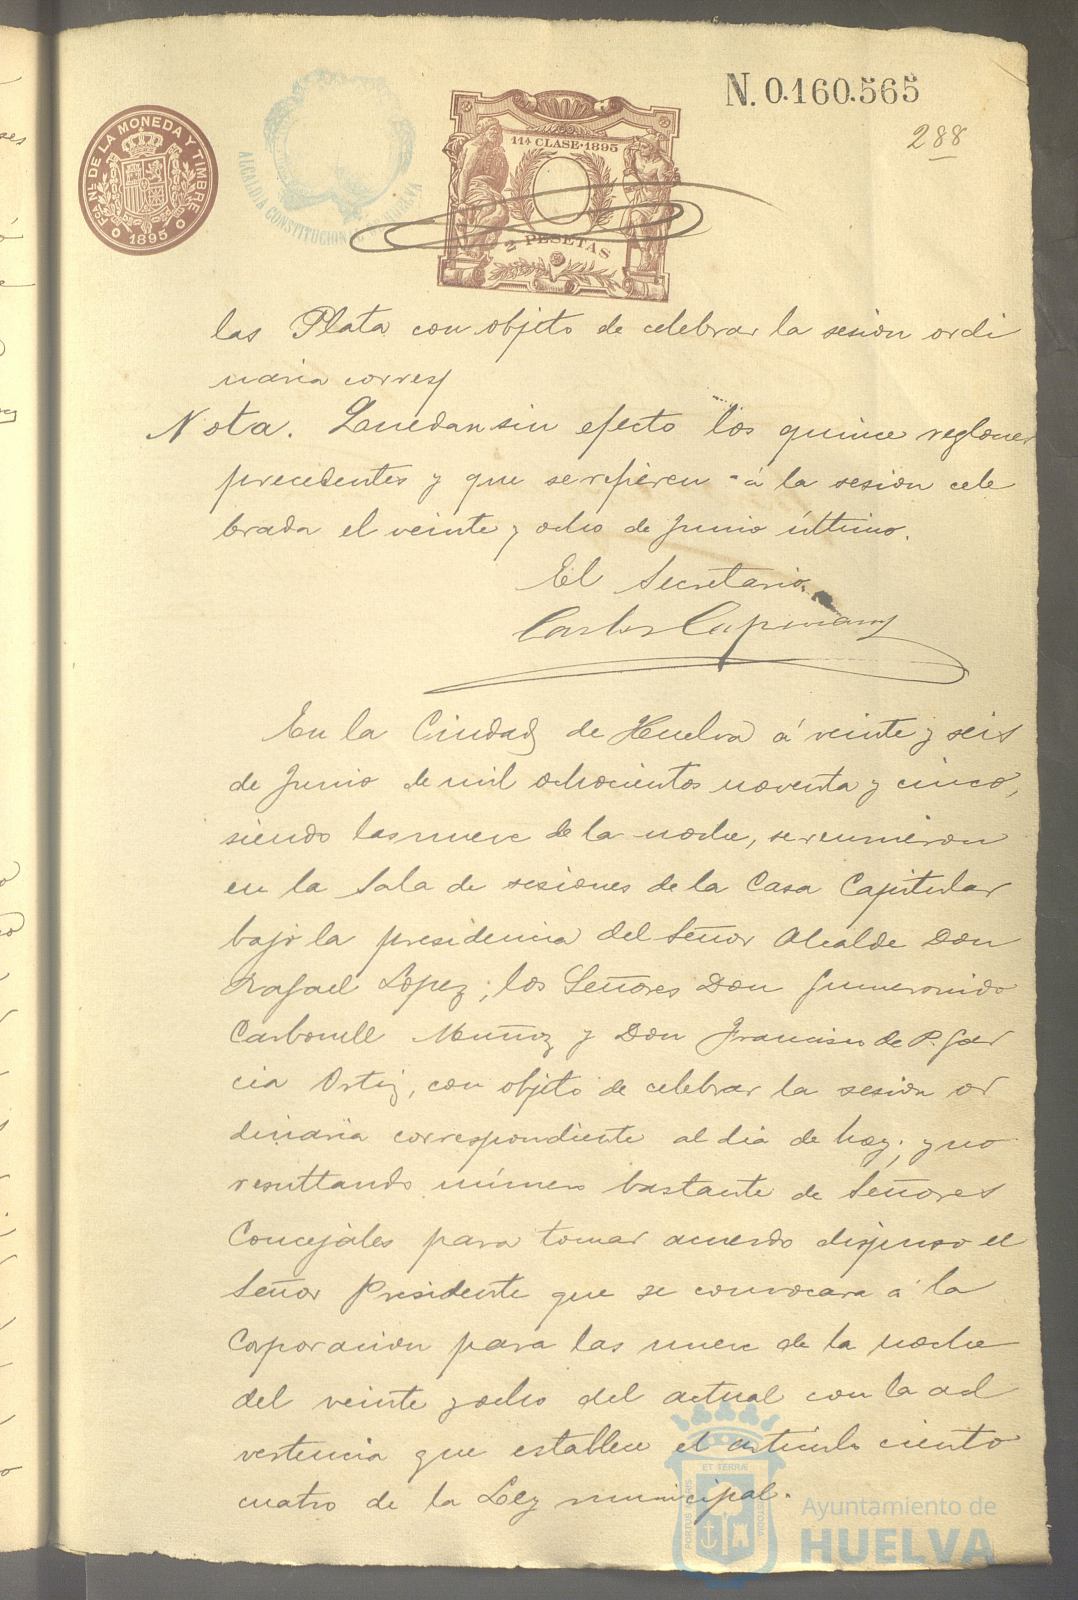 N. 0.160.565
288
FCA. NL. DE LA MONEDA Y TIMBRE
1895
ALCALDIA CONSTITUCIONAL DE HUELVA
11ª CLASE·1895
2 PESETAS
las Plata con objeto de celebrar la sesion ordi
naria corresp
Nota. Quedan sin efecto los quince reglones
precedentes y que se refieren á la sesion cele
brada el veinte y ocho de Junio último.
El Secretario,
Carlos
En la Ciudad de Huelva á veinte y seis
de Junio de mil ochocientos noventa y cinco,
siendo las nueve de la noche, se reunieron
en la Sala de sesiones de la Casa Capitular
bajo la presidencia del Señor Alcalde Don
Rafael Lopez; los Señores Don Gumersindo
Carbonell Muñoz y Don Francisco de P. Gar
cia Ortiz, con objeto de celebrar la sesion or
dinaria correspondiente al dia de hoy; y no
resultando número bastante de Señores
Concejales para tomar acuerdo dispuso el
Señor Presidente que se convocara á la
Corporacion para las nueve de la noche
del veinte y ocho del actual con la ad
vertencia que establece el articulo ciento
cuatro de la Ley municipal.
PORTUS MARIS
ET TERRÆ
CUSTODIA
Ayuntamiento de
HUELVA